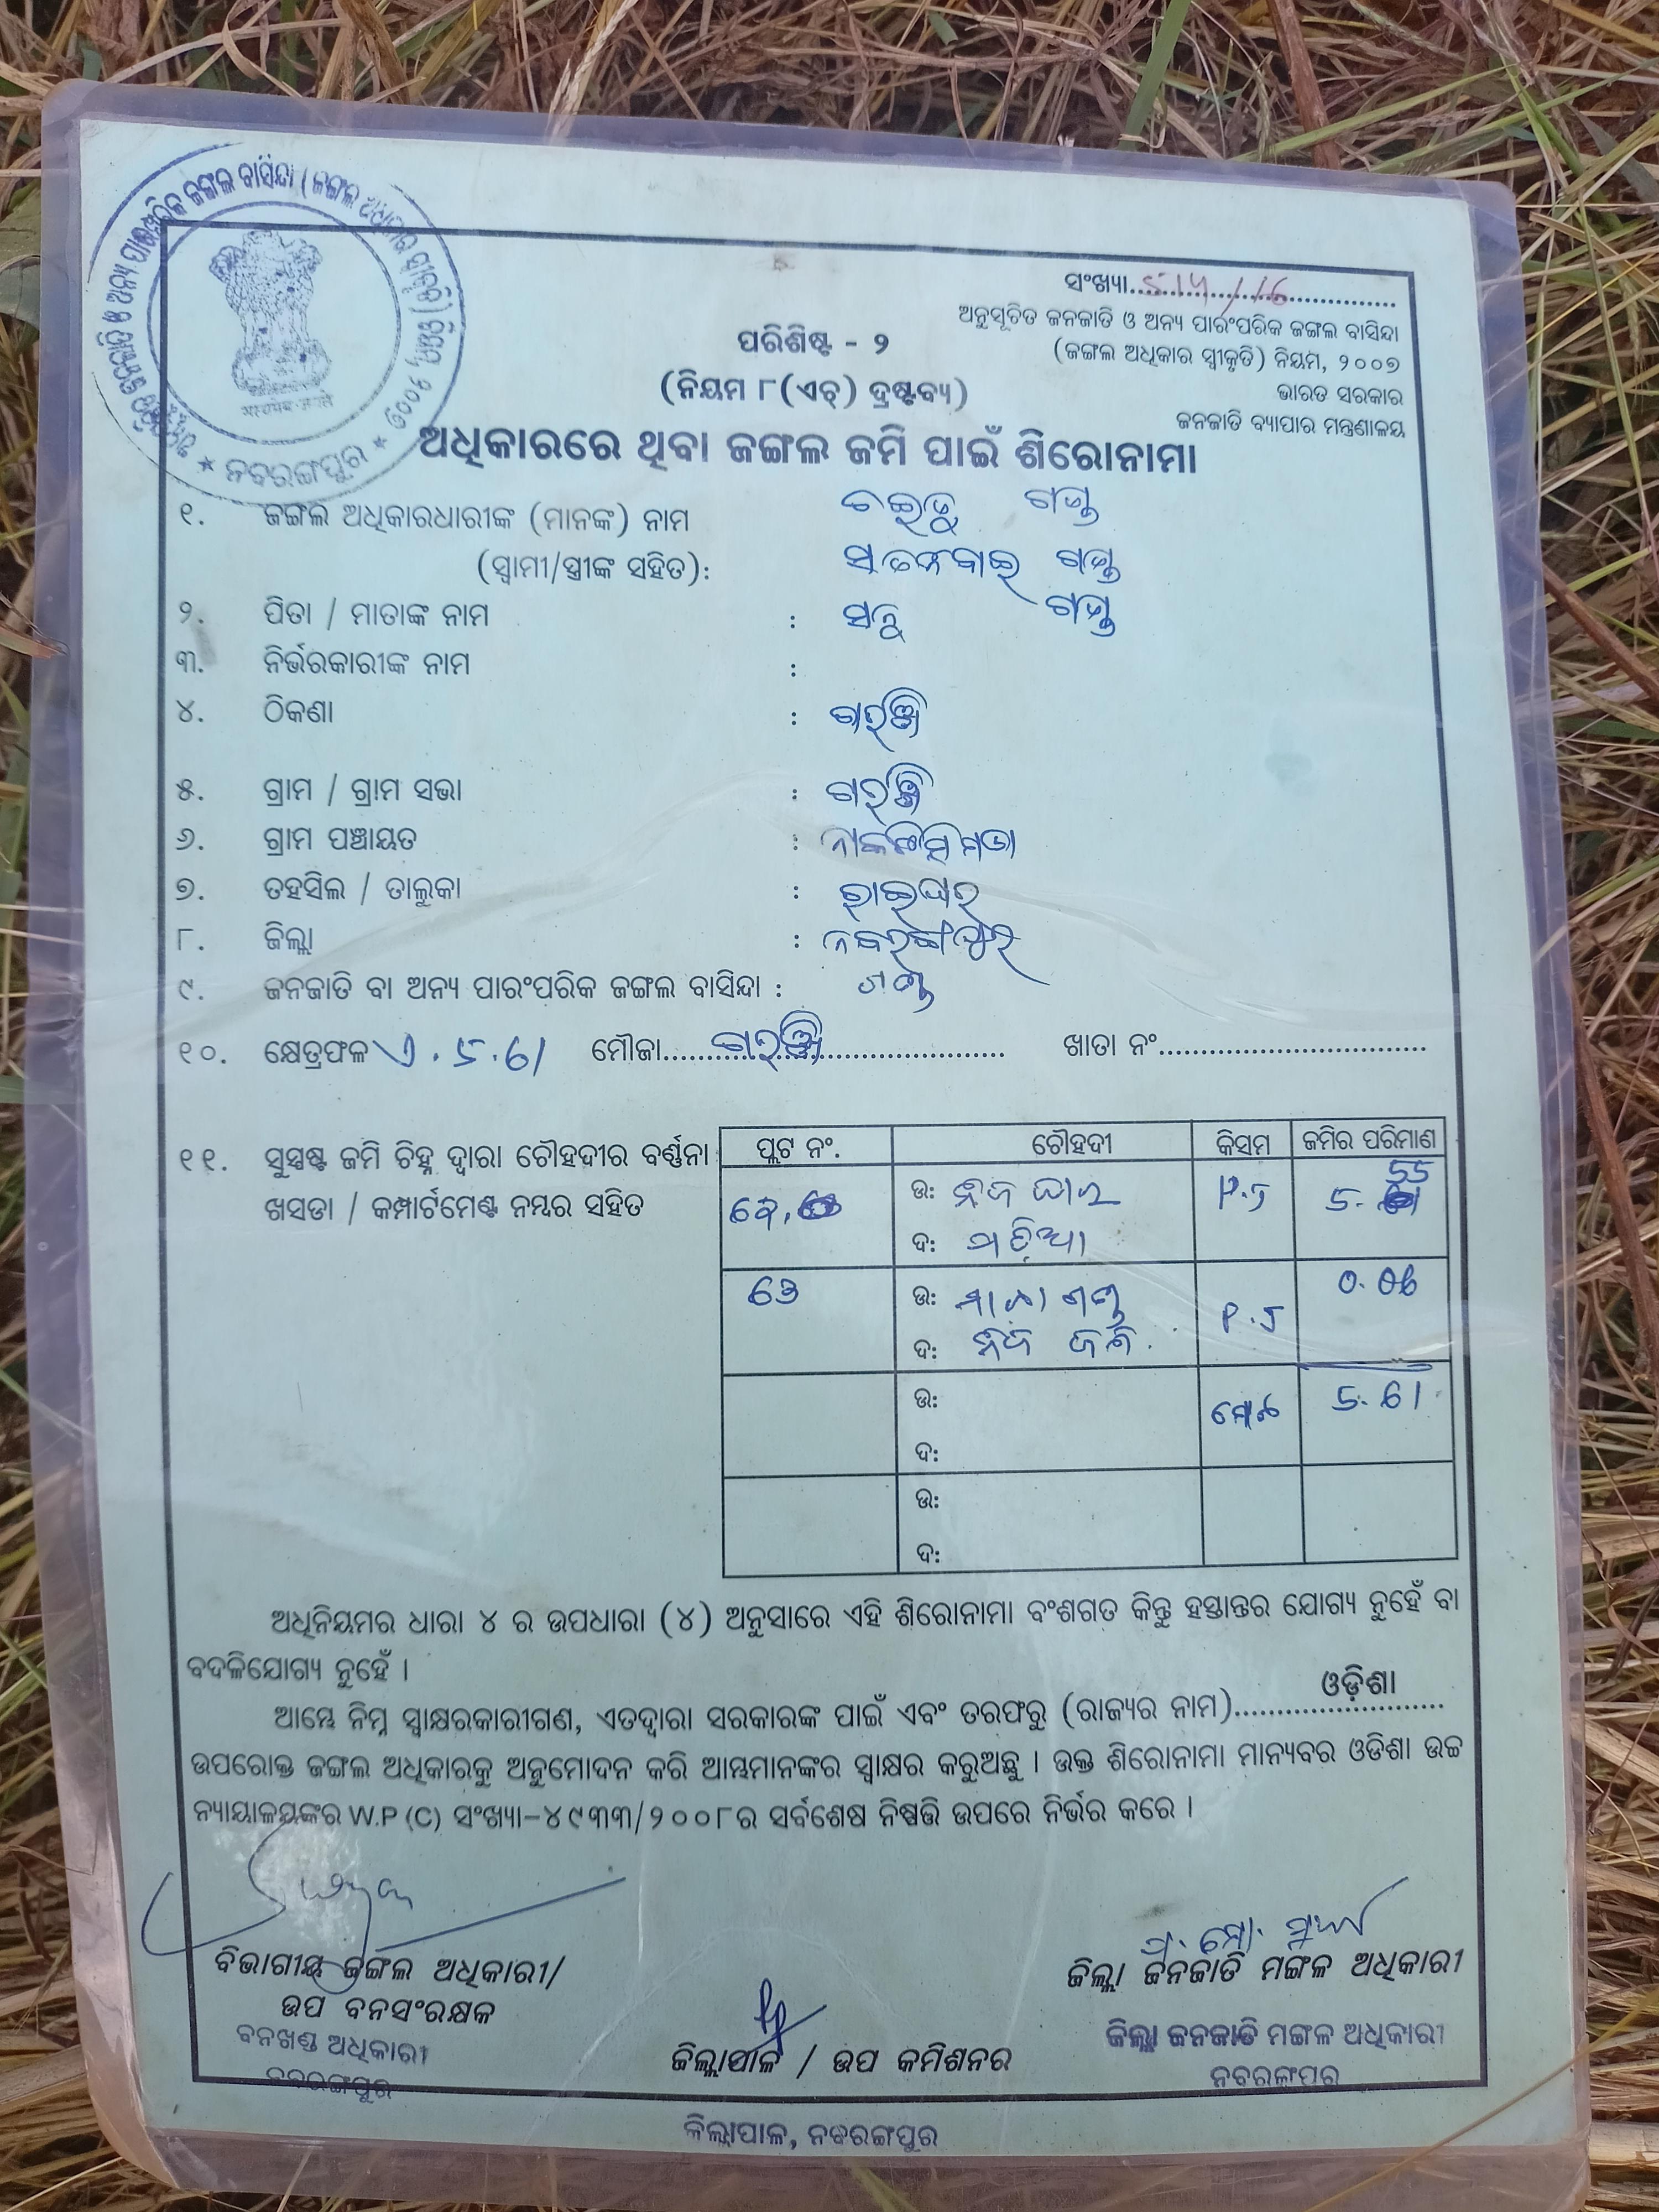 ସଂଖ୍ୟା..............................
ଅନୁସୂଚିତ ଜନଜାତି ଓ ଅନ୍ୟ ପାରଂପରିକ ଜଙ୍ଗଲ ବାସିନ୍ଦା
(ଜଙ୍ଗଲ ଅଧିକାର ସ୍ୱୀକୃତି) ନିୟମ, ୨୦୦୭
ଭାରତ ସରକାର
ଜନଜାତି ବ୍ୟାପାର ମନ୍ତ୍ରଣାଳୟ
ପରିଶିଷ୍ଟ - ୨
(ନିୟମ ୮(ଏଚ୍) ଦ୍ରଷ୍ଟବ୍ୟ)
ଅଧିକାରରେ ଥିବା ଜଙ୍ଗଲ ଜମି ପାଇଁ ଶିରୋନାମା
★ ନବରଙ୍ଗପୁର ★
୧. ଜଙ୍ଗଲ ଅଧିକାରଧାରୀଙ୍କ (ମାନଙ୍କ) ନାମ ଗଣ୍ଡ
(ସ୍ୱାମୀ/ସ୍ତ୍ରୀଙ୍କ ସହିତ): ଗଣ୍ଡ
୨. ପିତା / ମାତାଙ୍କ ନାମ : ଗଣ୍ଡ
୩. ନିର୍ଭରକାରୀଙ୍କ ନାମ :
୪. ଠିକଣା :
୫. ଗ୍ରାମ / ଗ୍ରାମ ସଭା :
୬. ଗ୍ରାମ ପଞ୍ଚାୟତ :
୭. ତହସିଲ / ତାଲୁକା : ରାଇଘର
୮. ଜିଲ୍ଲା : ନବରଙ୍ଗପୁର
୯. ଜନଜାତି ବା ଅନ୍ୟ ପାରଂପରିକ ଜଙ୍ଗଲ ବାସିନ୍ଦା : ଗଣ୍ଡ
୧୦. କ୍ଷେତ୍ରଫଳ 5.61 ମୌଜା.................... ଖାତା ନଂ....................
୧୧. ସୁସ୍ପଷ୍ଟ ଜମି ଚିହ୍ନ ଦ୍ୱାରା ଚୌହଦୀର ବର୍ଣ୍ଣନା
ଖସଡା / କମ୍ପାର୍ଟମେଣ୍ଟ ନମ୍ବର ସହିତ
ପ୍ଲଟ ନଂ. ଚୌହଦୀ କିସମ ଜମିର ପରିମାଣ
ଉ: P.J 5. 55
ଦ:
ଉ: P.J
ଦ:
ଉ: ମୋଟ 5.61
ଦ:
ଉ:
ଦ:
ଅଧିନିୟମର ଧାରା ୪ ର ଉପଧାରା (୪) ଅନୁସାରେ ଏହି ଶିରୋନାମା ବଂଶଗତ କିନ୍ତୁ ହସ୍ତାନ୍ତର ଯୋଗ୍ୟ ନୁହେଁ ବା
ବଦଳିଯୋଗ୍ୟ ନୁହେଁ ।
ଆମ୍ଭେ ନିମ୍ନ ସ୍ୱାକ୍ଷରକାରୀଗଣ, ଏତଦ୍ୱାରା ସରକାରଙ୍କ ପାଇଁ ଏବଂ ତରଫରୁ (ରାଜ୍ୟର ନାମ)....ଓଡ଼ିଶା....
ଉପରୋକ୍ତ ଜଙ୍ଗଲ ଅଧିକାରକୁ ଅନୁମୋଦନ କରି ଆମ୍ଭମାନଙ୍କର ସ୍ୱାକ୍ଷର କରୁଅଛୁ । ଉକ୍ତ ଶିରୋନାମା ମାନ୍ୟବର ଓଡିଶା ଉଚ୍ଚ
ନ୍ୟାୟାଳୟଙ୍କର W.P (C) ସଂଖ୍ୟା-୪୯୩୩/୨୦୦୮ର ସର୍ବଶେଷ ନିଷ୍ପତ୍ତି ଉପରେ ନିର୍ଭର କରେ ।
ବିଭାଗୀୟ ଜଙ୍ଗଲ ଅଧିକାରୀ/
ଉପ ବନସଂରକ୍ଷକ
ବନଖଣ୍ଡ ଅଧିକାରୀ
ନବରଙ୍ଗପୁର
ଜିଲ୍ଲାପାଳ / ଉପ କମିଶନର
ଜିଲ୍ଲା ଜନଜାତି ମଙ୍ଗଳ ଅଧିକାରୀ
ଜିଲ୍ଲା ଜନଜାତି ମଙ୍ଗଳ ଅଧିକାରୀ
ନବରଙ୍ଗପୁର
ଜିଲ୍ଲାପାଳ, ନବରଙ୍ଗପୁର